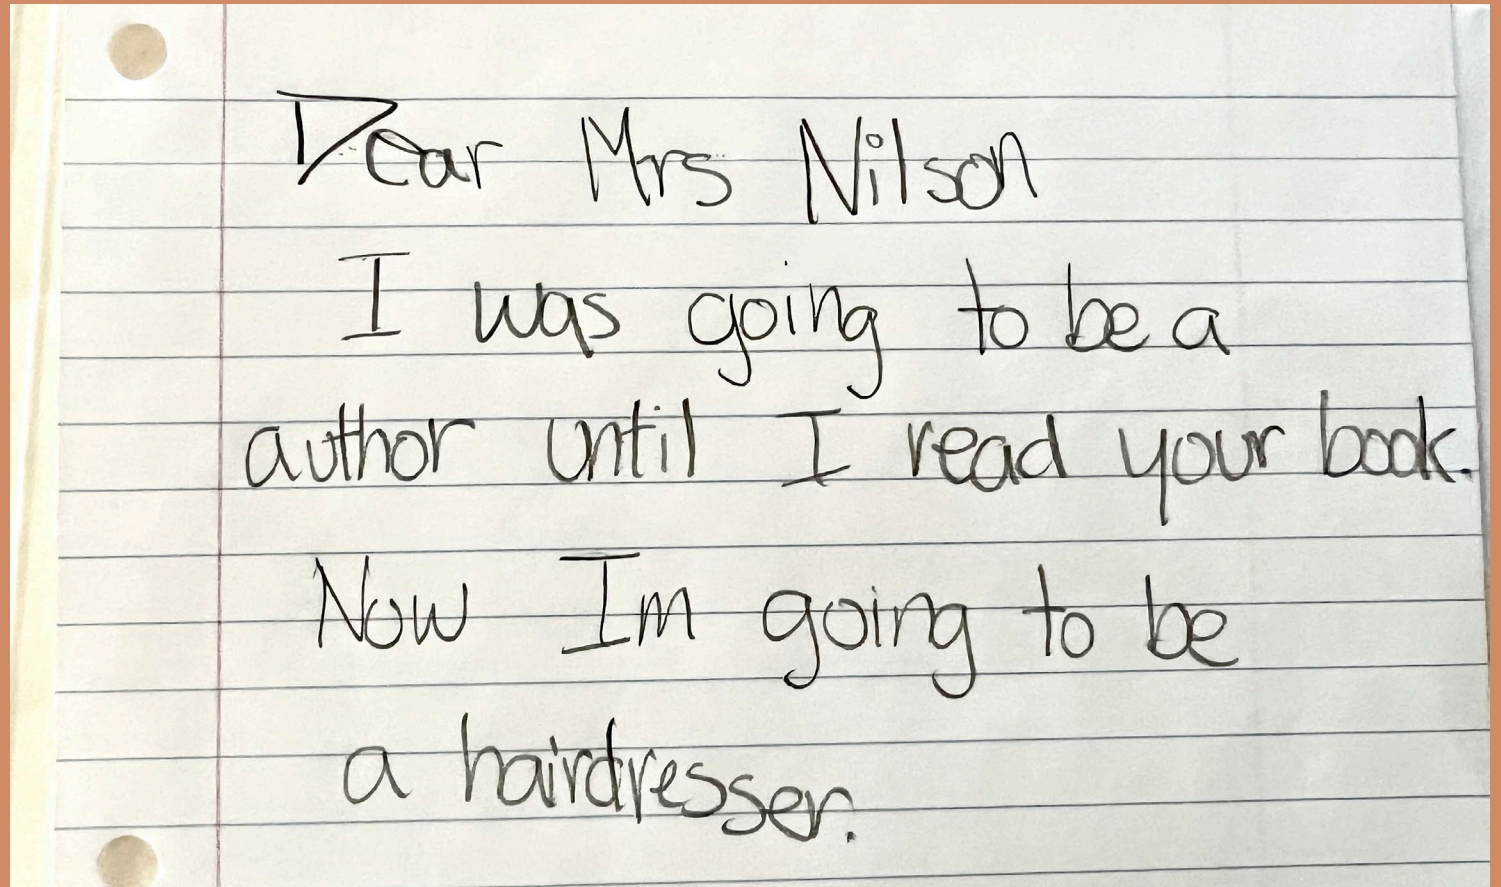 Dear Mrs Nilson
I was going to be a
author until I read your book.
Now Im going to be
a hairdresser.